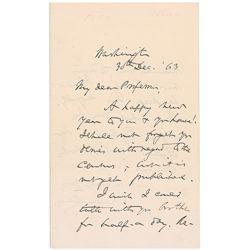 Washington
30th Dec. '63
My dear Professor,
A happy new
year to you & yours!
I shall not forget your
desires with regard to the
Census — but it is
not yet published.
I wish I could
talk with you
for half a day.